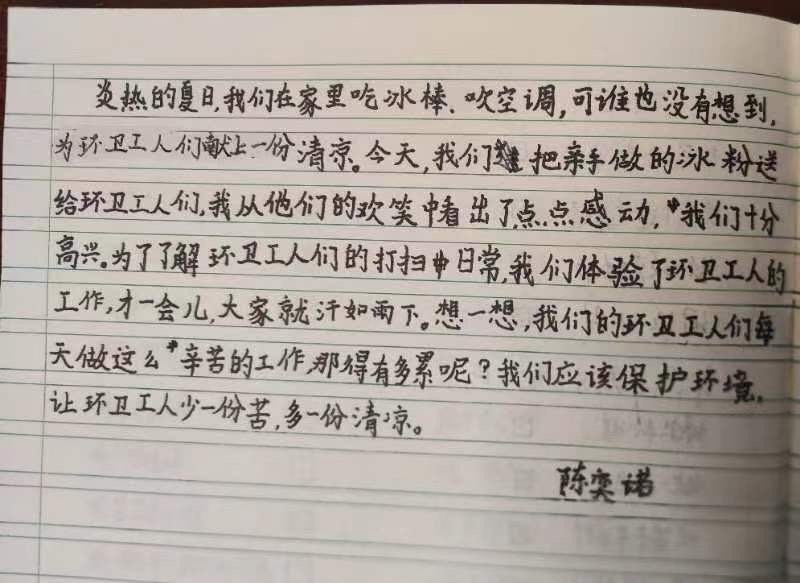 炎热的夏日,我们在家里吃冰棒、吹空调,可谁也没有想到,
为环卫工人们献上一份清凉。今天,我们把亲手做的冰粉送
给环卫工人们,我从他们的欢笑中看出了点点感动,我们十分
高兴。为了了解环卫工人们的打扫日常,我们体验了环卫工人的
工作,才一会儿,大家就汗如雨下。想一想,我们的环卫工人们每
天做这么辛苦的工作,那得有多累呢?我们应该保护环境,
让环卫工人少一份苦,多一份清凉。
陈奕诺